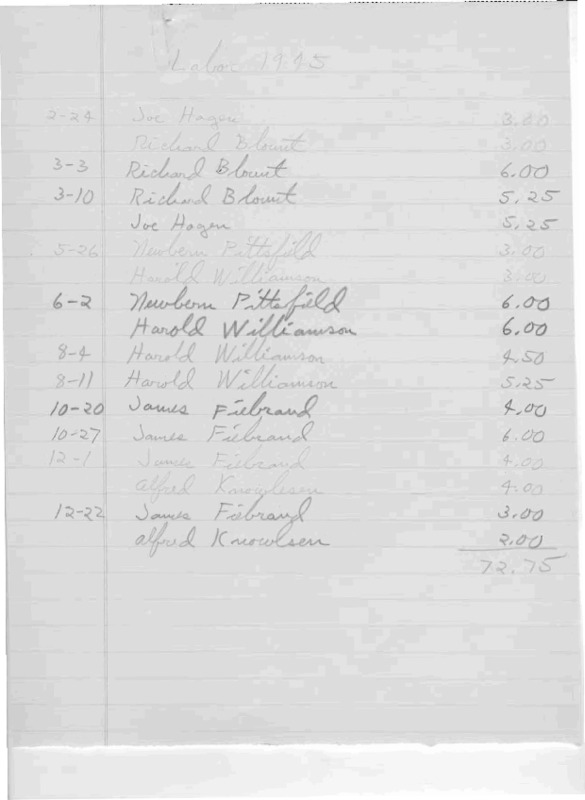 Labor 1945
2-24 Joe Hagen 3.00
Richard Blount 3.00
3-3 Richard Blount 6.00
3-10 Richard Blount 5.25
Joe Hagen 5.25
5-26 Newbern Pittsfield 3.00
Harold Williamson 3.00
6-2 Newbern Pittsfield 6.00
Harold Williamson 6.00
8-4 Harold Williamson 4.50
8-11 Harold Williamson 5.25
10-20 James Fiebrand 4.00
10-27 James Fiebrand 6.00
12-1 James Fiebrand 4.00
Alfred Knowlsen 4.00
12-22 James Fiebrand 3.00
Alfred Knowlsen 2.00
72.75